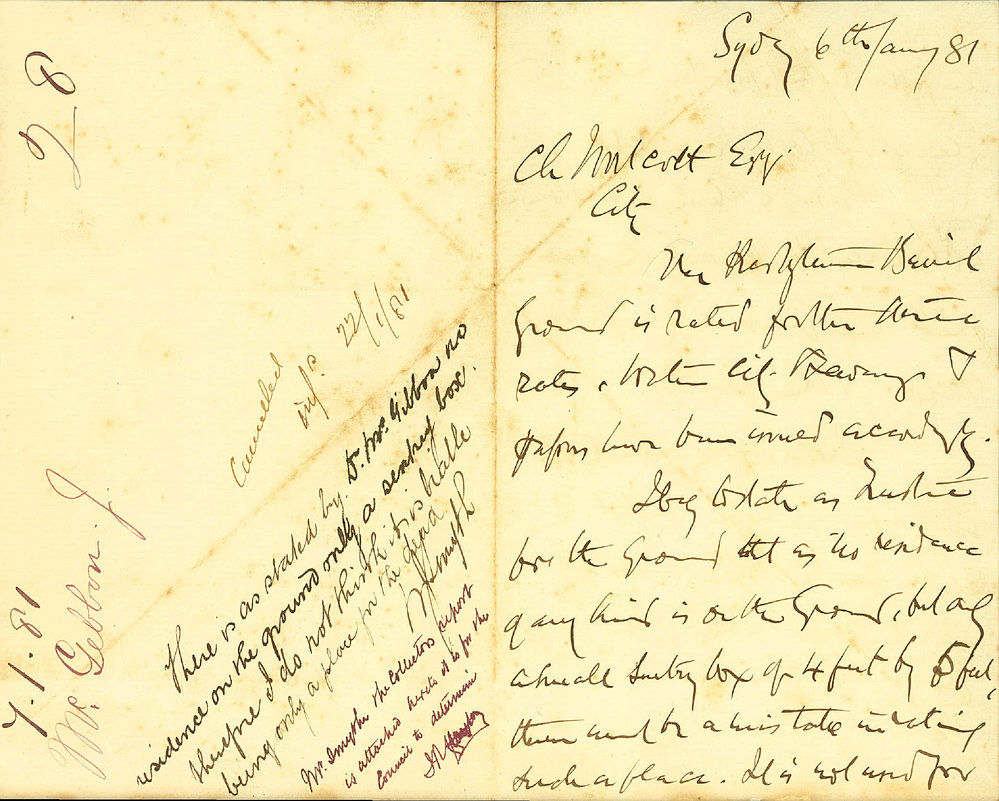 28
7.1.81
Mc Gibbon J.
Cancelled
22/1/81
There is as stated by Dr. Mc. Gibbon no
residence on the ground only a sentry box.
therefore I do not think it is liable
being only a place for the dead
Smyth
Mr. Smythe the Collectors report
is attached hereto it is for the
Council to determin
Sydy 6th Jany 81
Ch Woolcott Esqr
City
The Presbyterian Burial
Ground is rated for the three
rates, to the City Sewerage &
papers have been issued accordgly.
I beg to state as Trustee
for the Ground tht as no residence
of any kind is on the Ground, but only
a small Sentry box of 4 feet by 5 feet,
there must be a mistake in rating
such a place. It is not used for